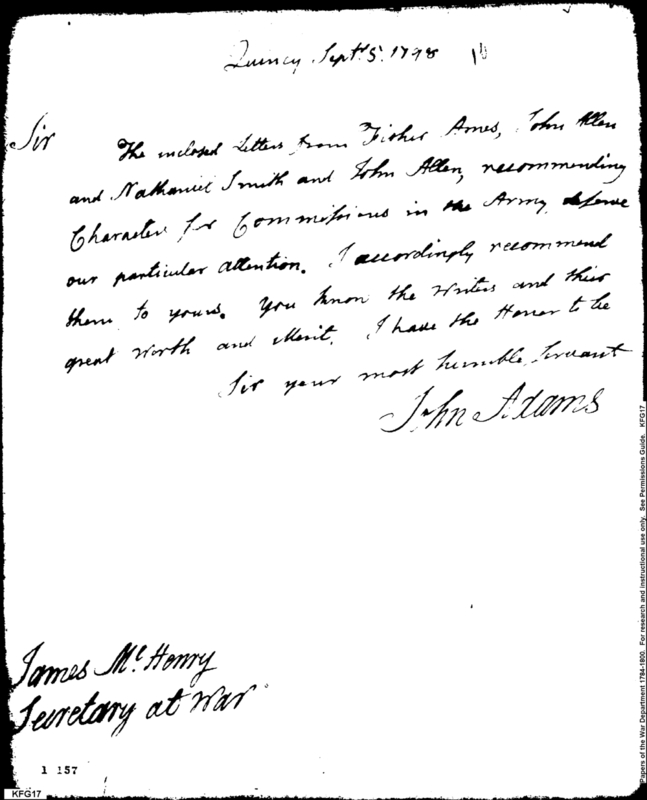 Quincy Sept. 5. 1798
Sir
The inclosed Letters from Fisher Ames, John Allen
and Nathaniel Smith and John Allen, recommending
Characters for Commissions in the Army, deserve
our particular attention. I accordingly recommend
them to yours. You know the writers and their
great worth and Merit. I have the Honor to be
Sir your most humble Servant
John Adams
James McHenry
Secretary at War
1 157
KFG17
Papers of the War Department 1784-1800. For research and instructional use only. See Permissions Guide. KFG17